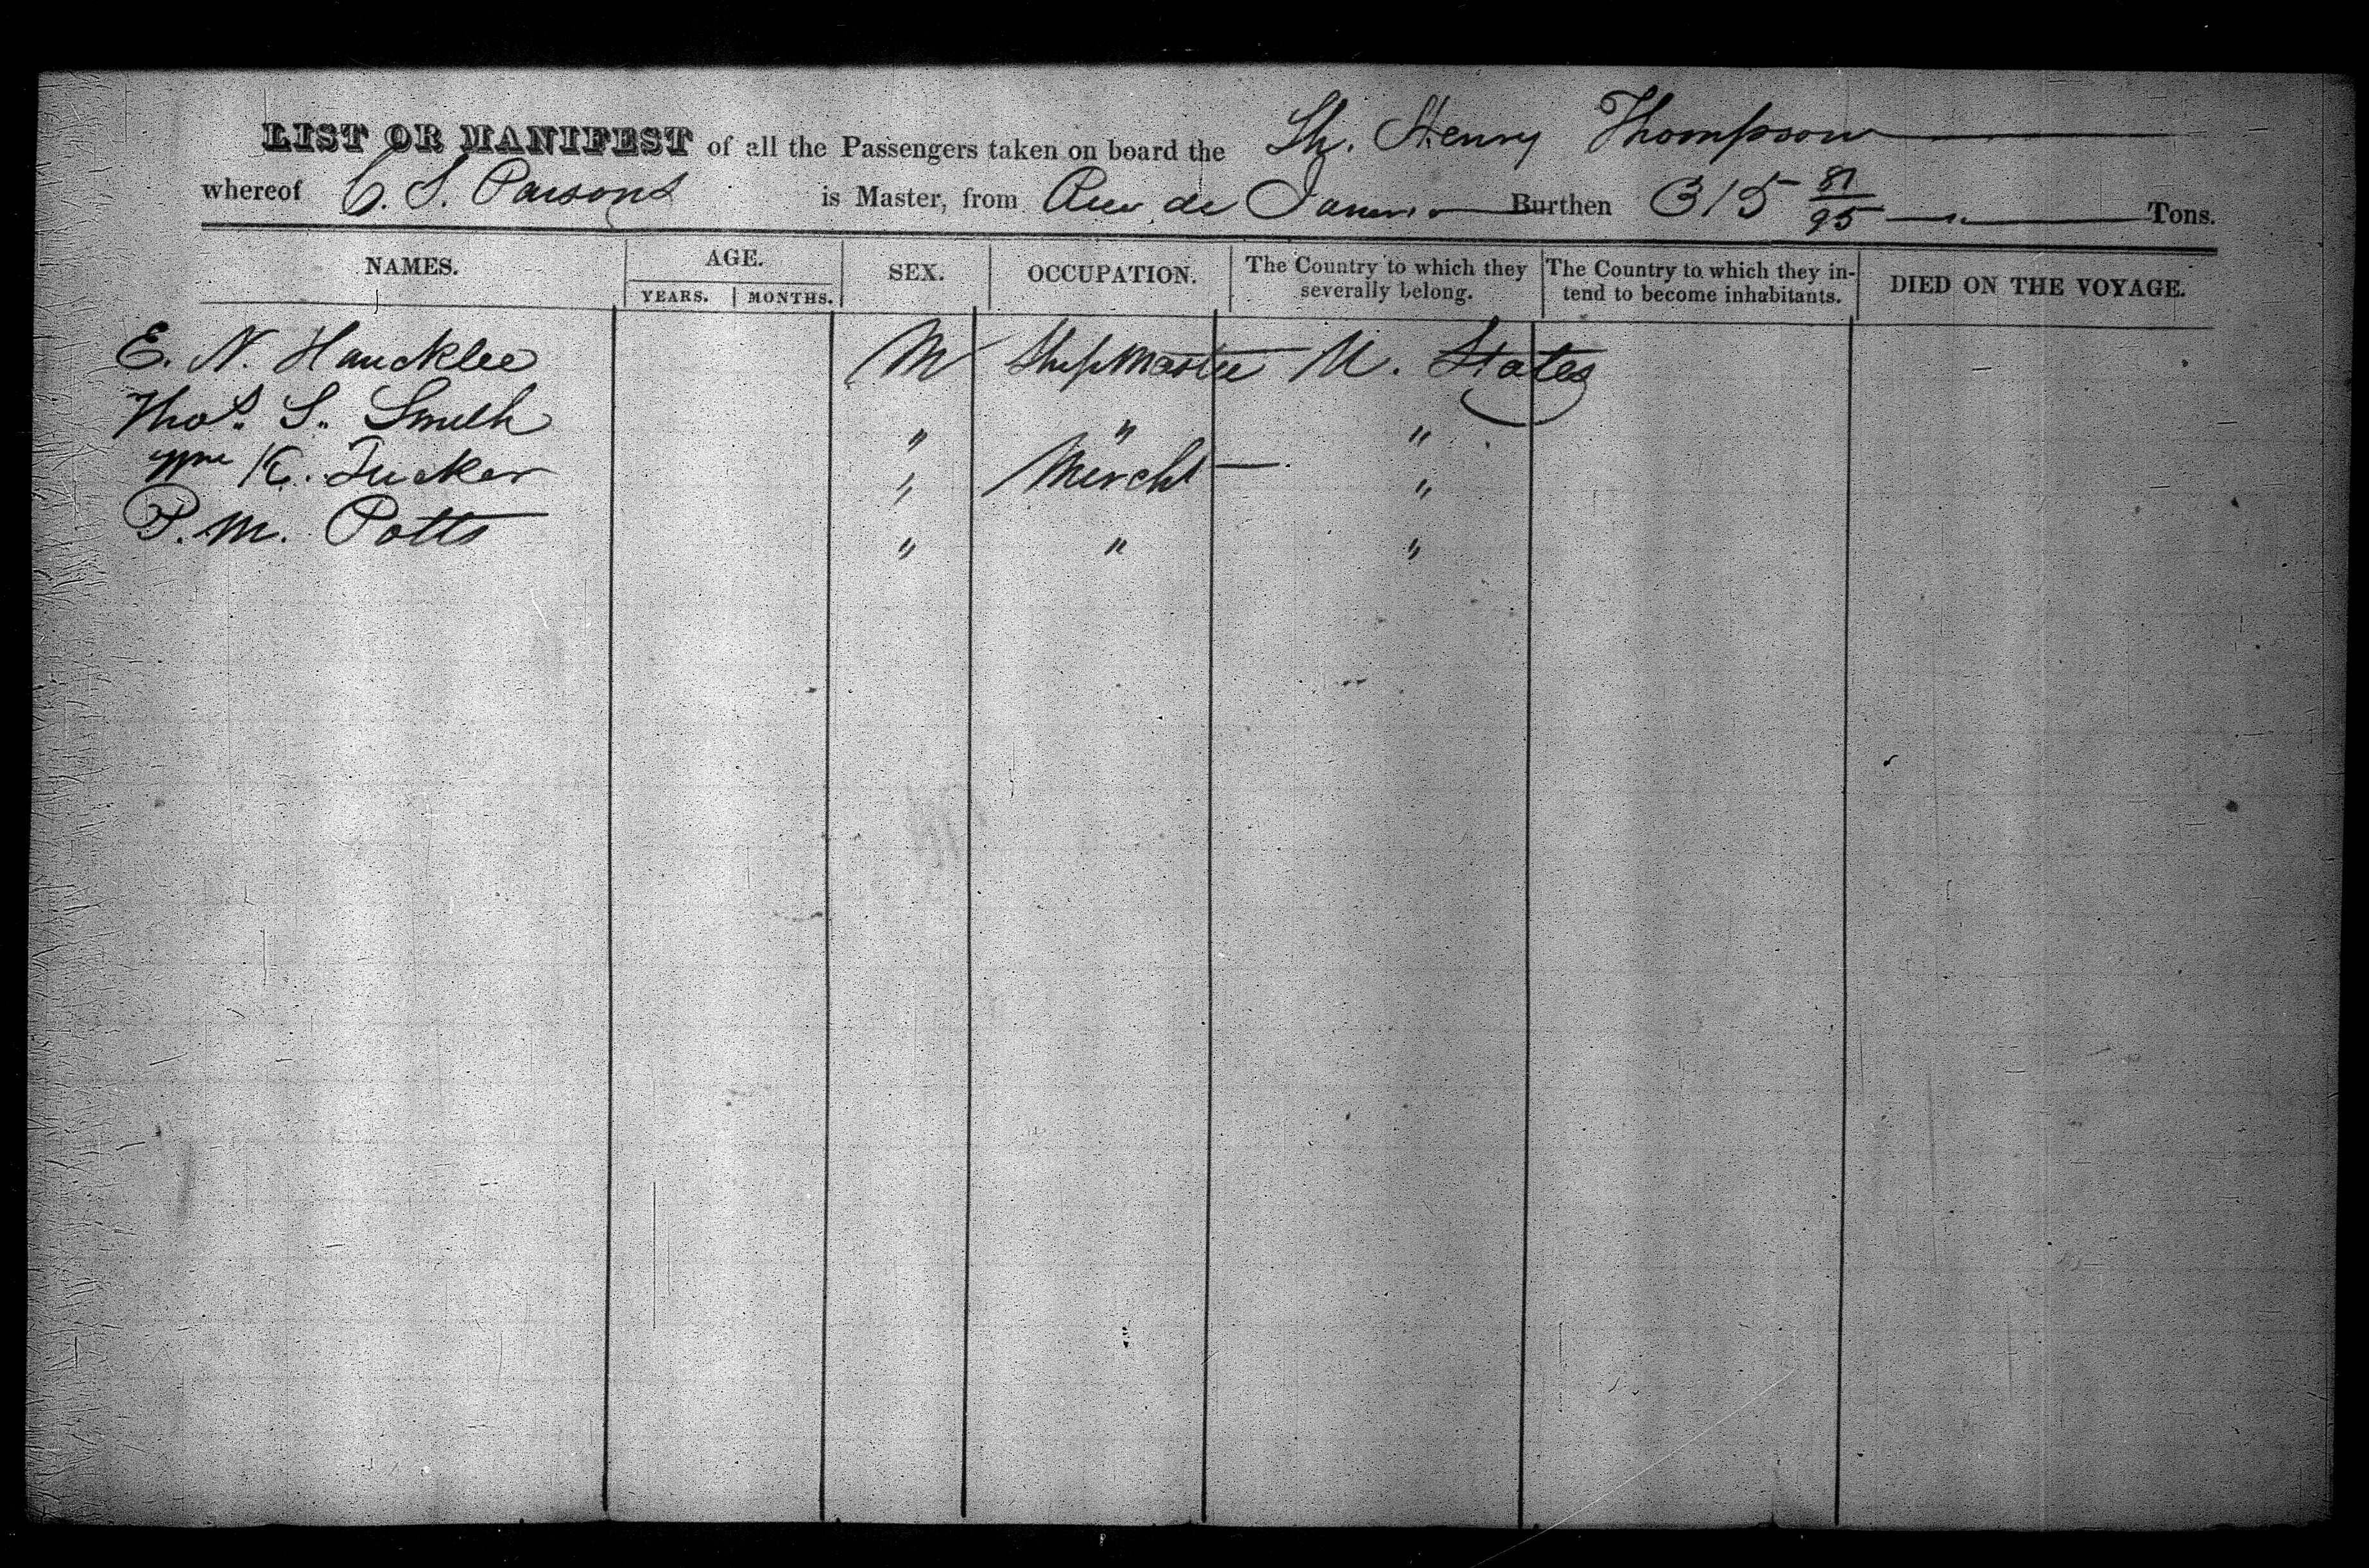 LIST OR MANIFEST of all the Passengers taken on board the Sh. Henry Thompson
whereof C. S. Parsons is Master, from Rio de Janeiro Burthen 315 81/95 Tons.
NAMES. AGE. SEX. OCCUPATION. The Country to which they severally belong. The Country to which they intend to become inhabitants. DIED ON THE VOYAGE.
YEARS. MONTHS.
E. N. M Shipmaster U. States
Thos. S. Smith " " "
Wm K. Tucker " Mercht "
P. M. Potts " " "